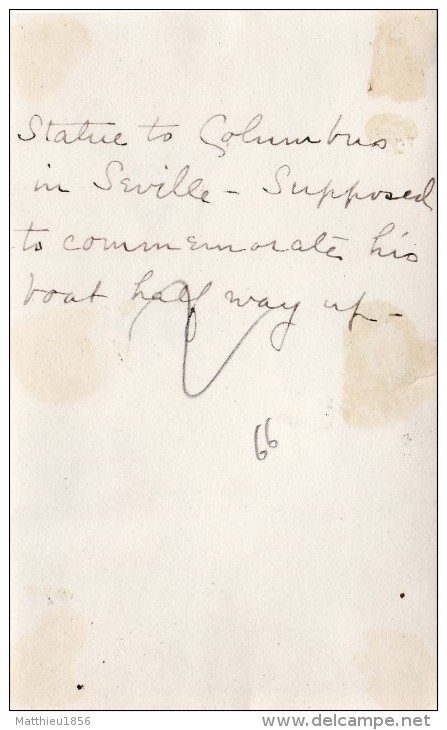 Statue to Columbus
in Seville - Supposed
to commemorate his
boat half way up -
66
Matthieu1856
www.delcampe.net